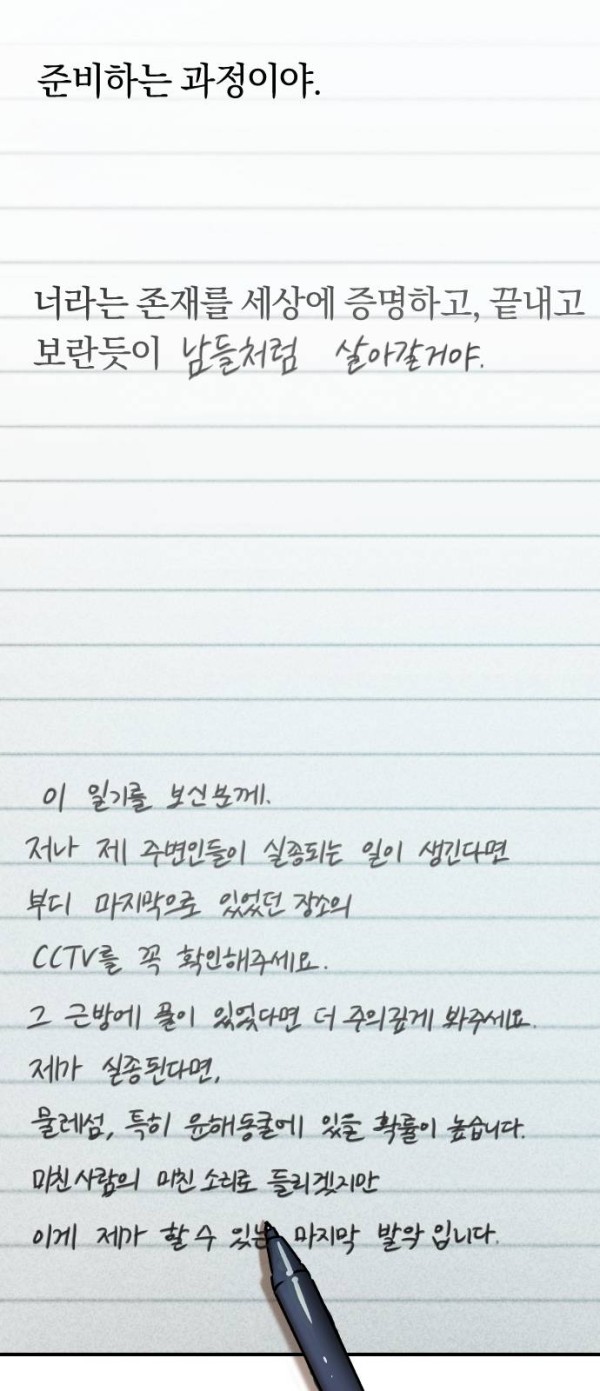 준비하는 과정이야.
너라는 존재를 세상에 증명하고, 끝내고
보란듯이 남들처럼 살아갈거야.
이 일기를 보신분께.
저나 제 주변인들이 실종되는 일이 생긴다면
부디 마지막으로 있었던 장소의
CCTV를 꼭 확인해주세요.
그 근방에 물이 있었다면 더 주의깊게 봐주세요.
제가 실종된다면,
물레섬, 특히 윤해동굴에 있을 확률이 높습니다.
미친사람의 미친 소리로 들리겠지만
이게 제가 할 수 있는 마지막 발악입니다.